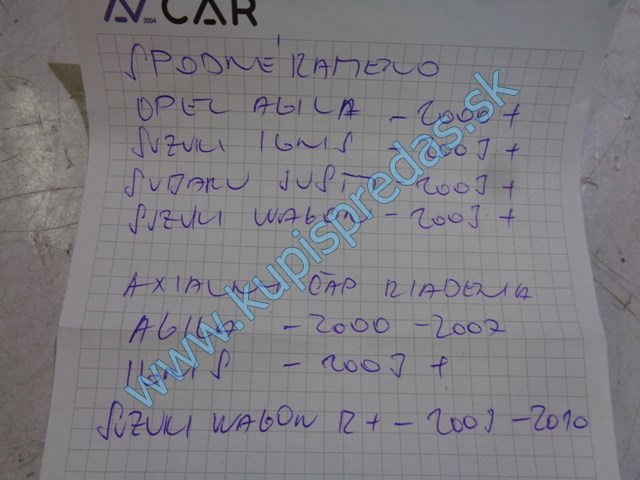 CAR
SPODNÉ RAMENO
OPEL AGILA - 2000 +
SUZUKI IGNIS - 2003 +
SUBARU JUSTY - 2003 +
SUZUKI WAGON - 2003 +
AXIALNY ČAP RIADENIA
AGILA - 2000 - 2007
IGNIS - 2003 +
SUZUKI WAGON R + - 2003 - 2010
www.kupispredas.sk